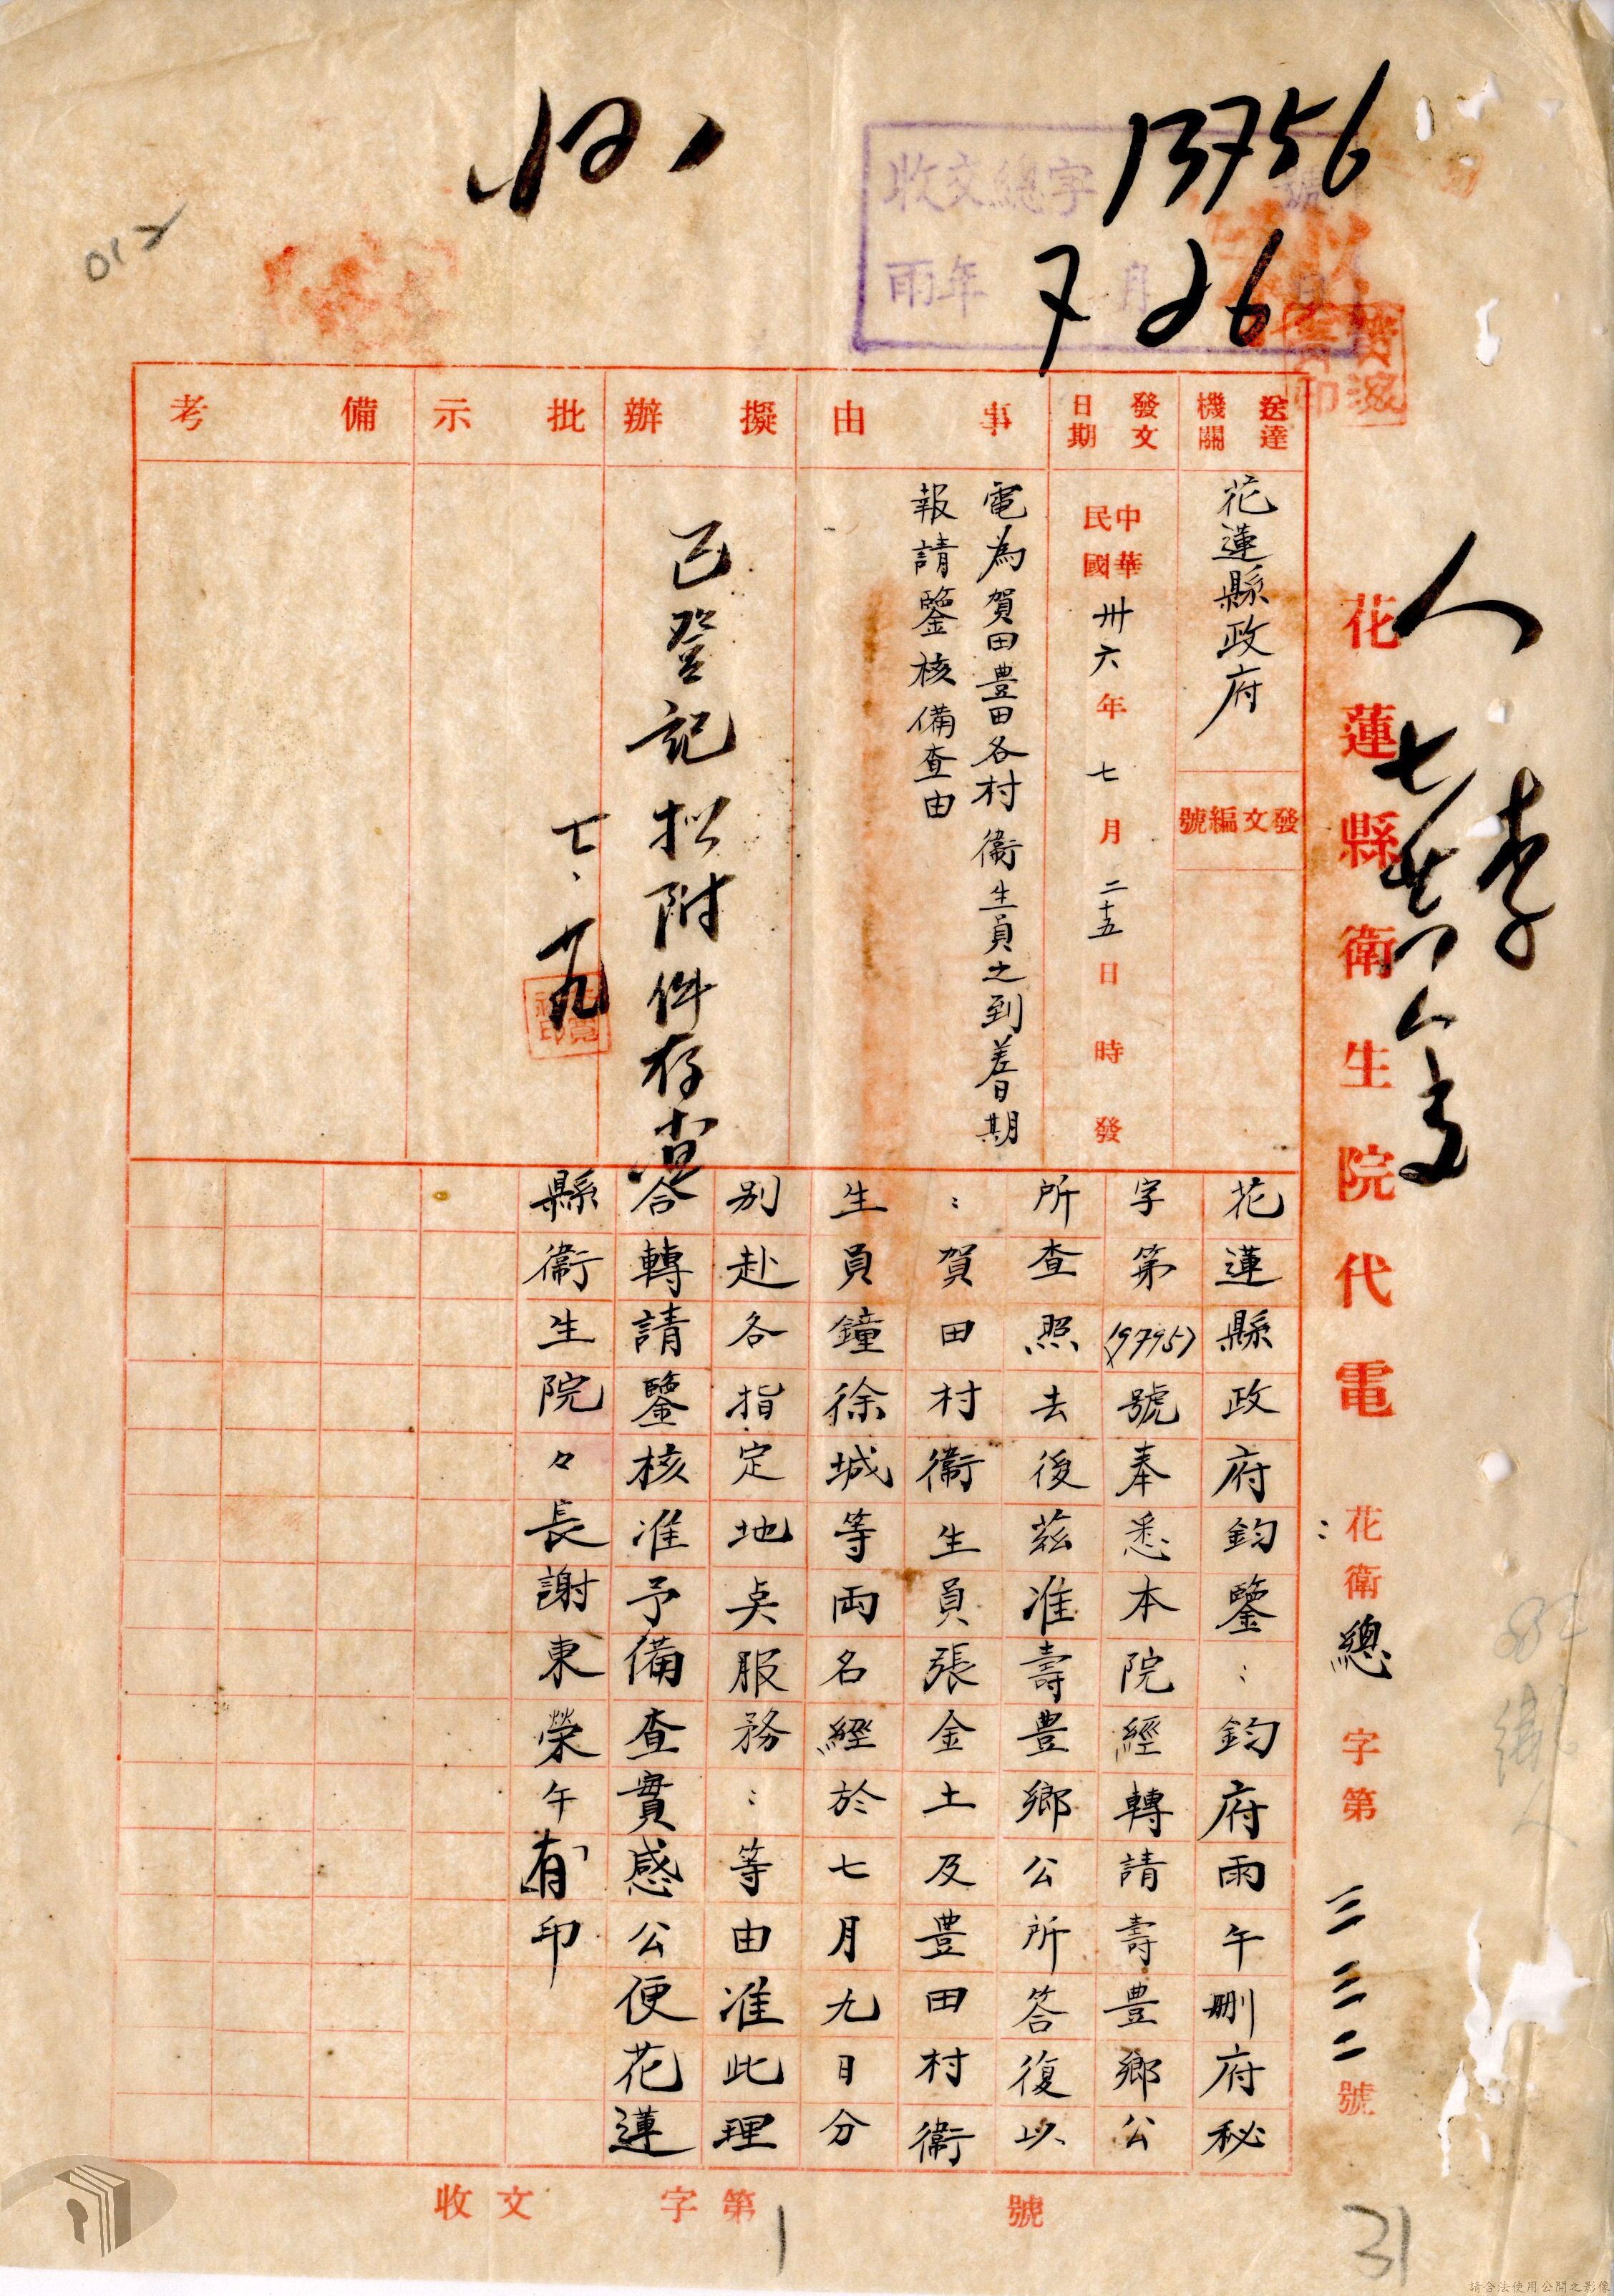 13756
收文總字 號
雨年 月 日
7 26
012
花蓮縣衛生院代電 花衛總字第三三二號
送達機關
花蓮縣政府
發文編號
發文日期
中華民國卅六年七月二十五日 時發
事由
電為賀田豊田各村衛生員之到着日期
報請鑒核備查由
擬辦
已登記擬附件存查
七、
批示
備考
花蓮縣政府鈞鑒:鈞府雨午刪府秘
字第(19795)號奉悉本院經轉請壽豊鄉公
所查照去後茲准壽豊鄉公所答復以
:賀田村衛生員張金土及豊田村衛
生員鐘徐城等両名經於七月九日分
別赴各指定地点服務:等由准此理
合轉請鑒核准予備查實感公便花蓮
縣衛生院々長謝東榮午「有」印
收文 字第 號
31
請合法使用公開之影像